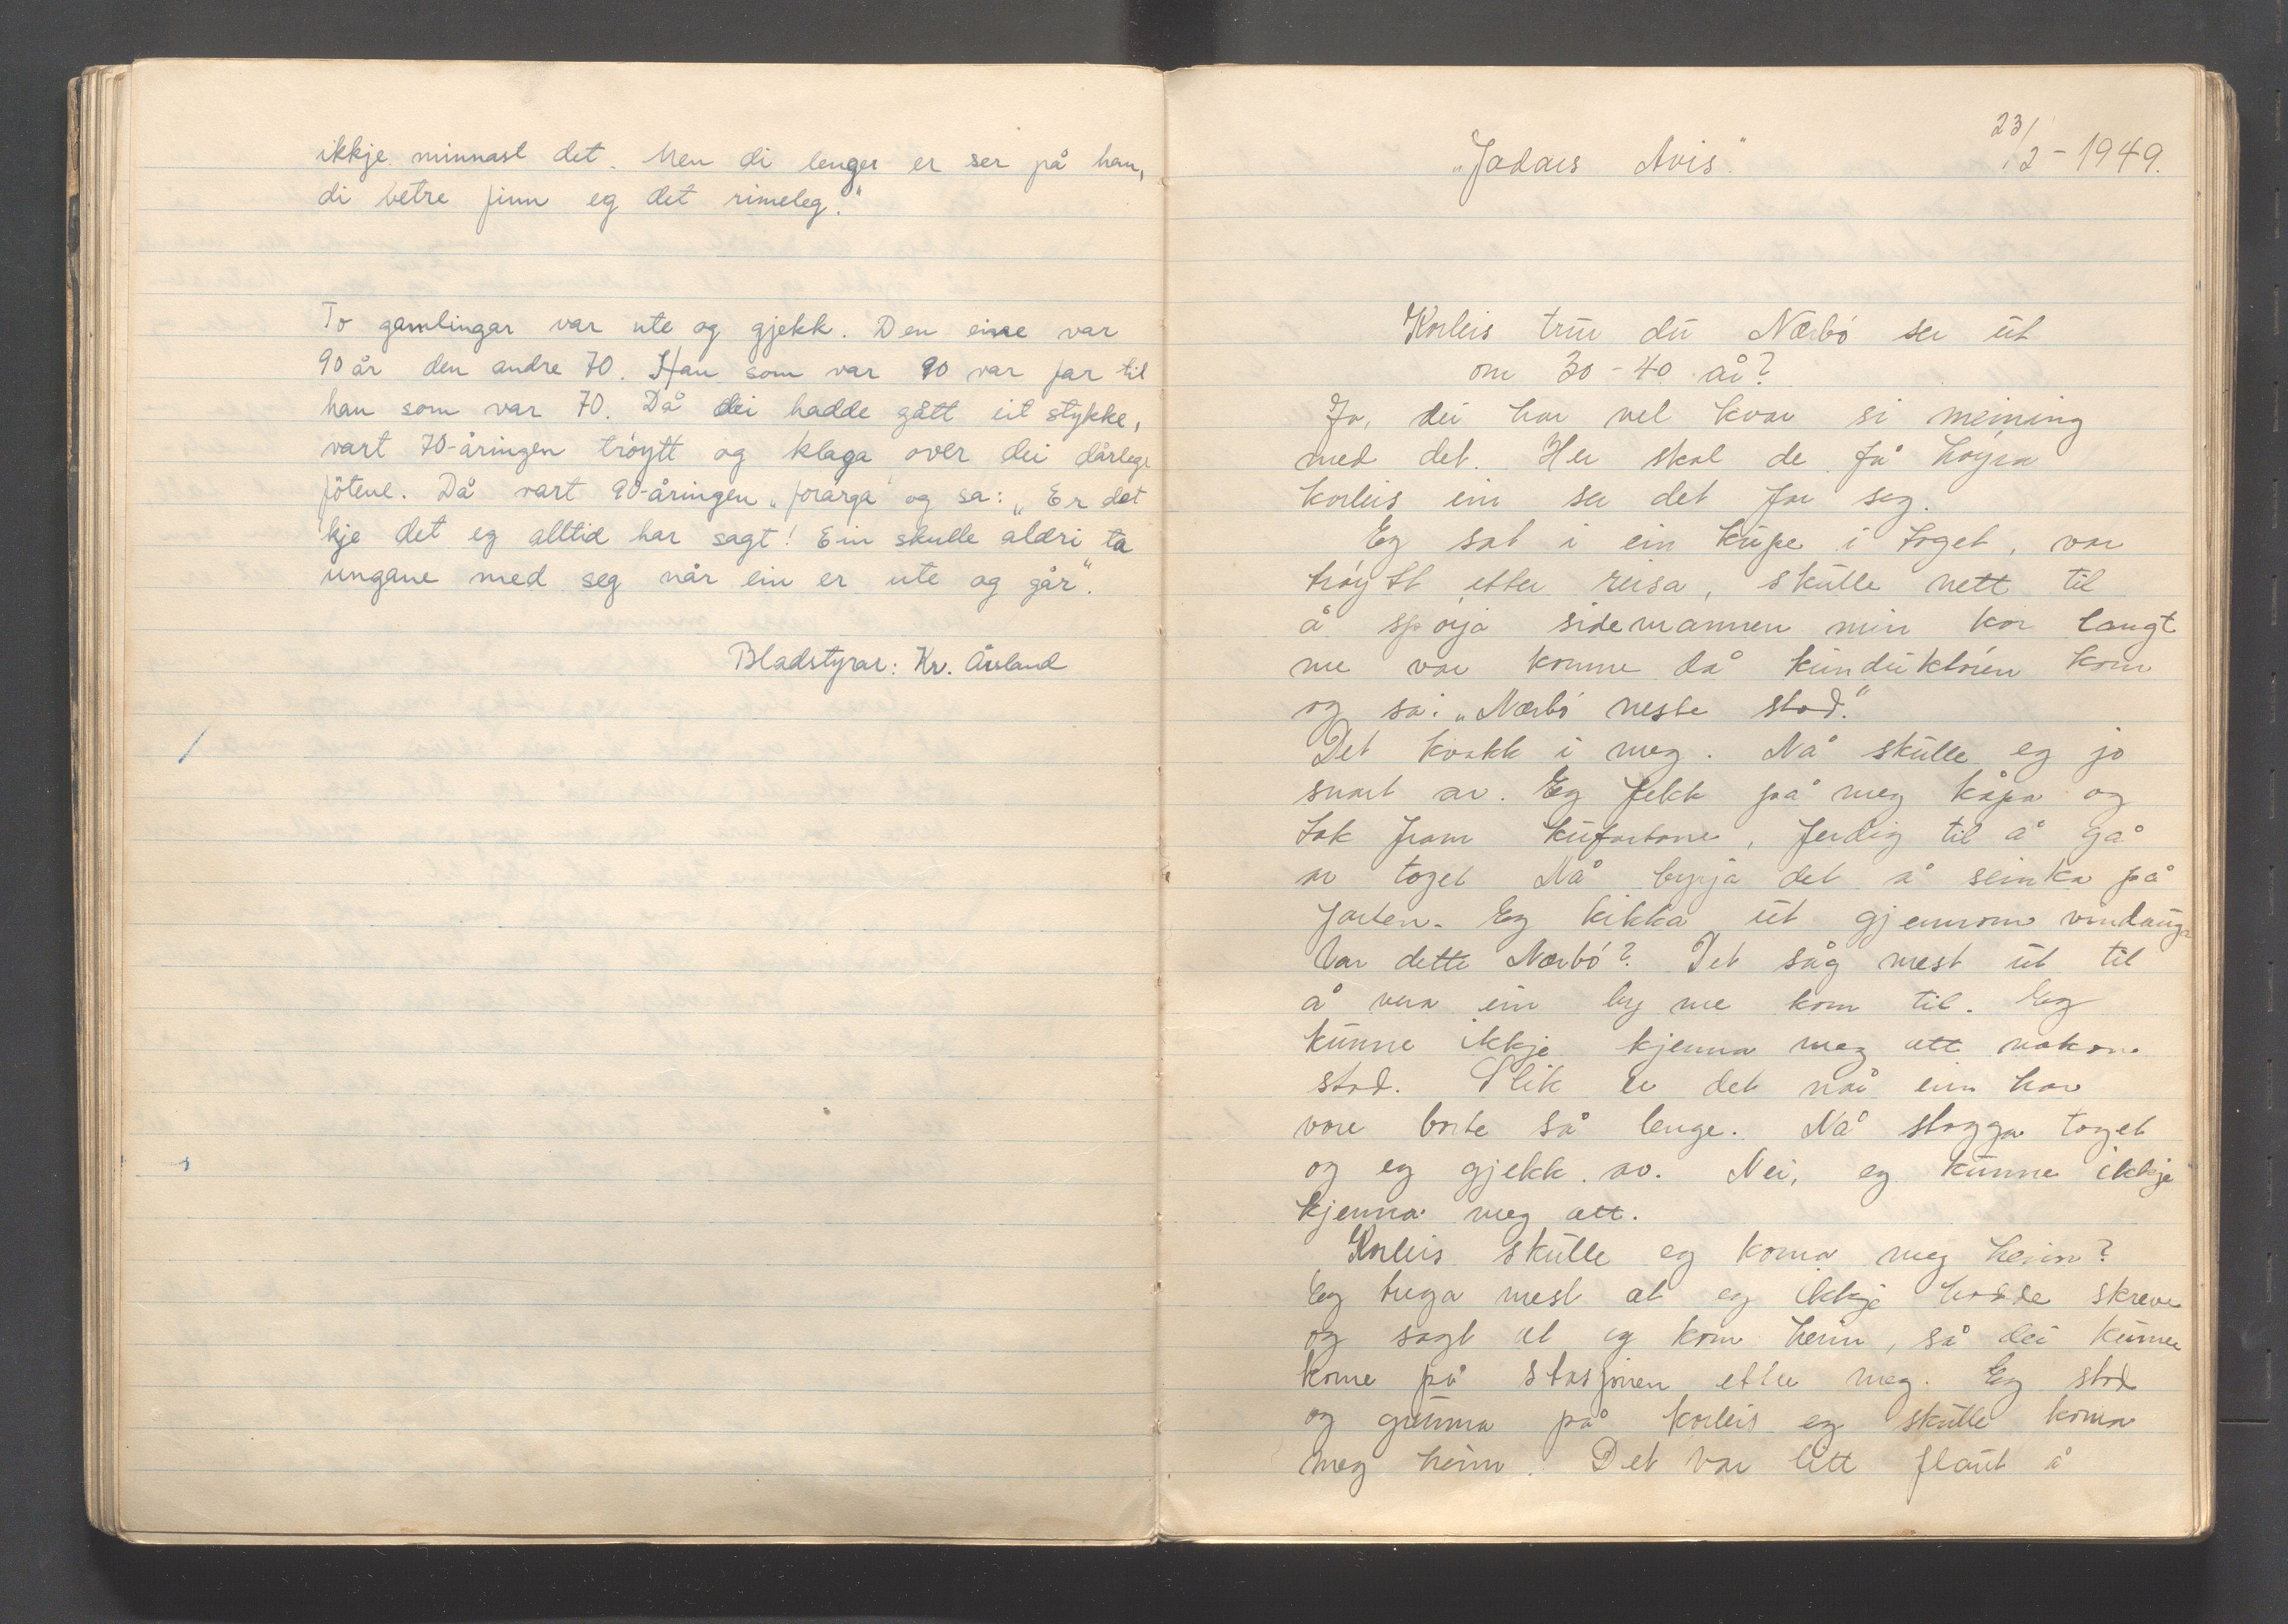 ikkje minnast det. Men di lenger er ser på han,
di betre finn eg det rimeleg."
To gamlingar var ute og gjekk. Den eine var
90 år den andre 70. Han som var 90 var far til
han som var 70. Då dei hadde gått eit stykke,
vart 70-åringen trøytt og klaga over dei dårlege
føtene. Då vart 90-åringen "forarga" og sa: "Er det
kje det eg alltid har sagt! Ein skulle aldri ta
ungane med seg når ein er ute og går".
Bladstyrar: Kr. Årsland
"Jadars Avis" 23/2-1949.
Korleis trur du Nærbø ser ut
om 30-40 år?
Ja, dei har vel kvar si meining
med det. Her skal de få høyra
korleis ein ser det for seg.
Eg sat i ein kupe i toget, var
trøytt etter reisa, skulle nett til
å spørja sidemannen min kor langt
me var komne då kunduktøren kom
og sa: "Nærbø neste stad."
Det kvakk i meg. Nå skulle eg jo
snart av. Eg fekk på meg kåpa og
tok fram kufertane, ferdig til å gå
av toget Nå byrja det å seinka på
farten. Eg kikka ut gjennom vindauga
Var dette Nærbø? Det såg mest ut til
å vera ein by me kom til. Eg
kunne ikkje kjenna meg att nokon
stad. Slik er det når ein har
vore borte så lenge. Nå stogga toget
og eg gjekk av. Nei, eg kunne ikkje
kjenna meg att.
Korleis skulle eg koma meg heim?
Eg trega mest at eg ikkje hadde skreve
og sagt at eg kom heim, så dei kunne
kome på stasjonen etter meg. Eg stod
og grunna på korleis eg skulle koma
meg heim. Det var litt flaut å